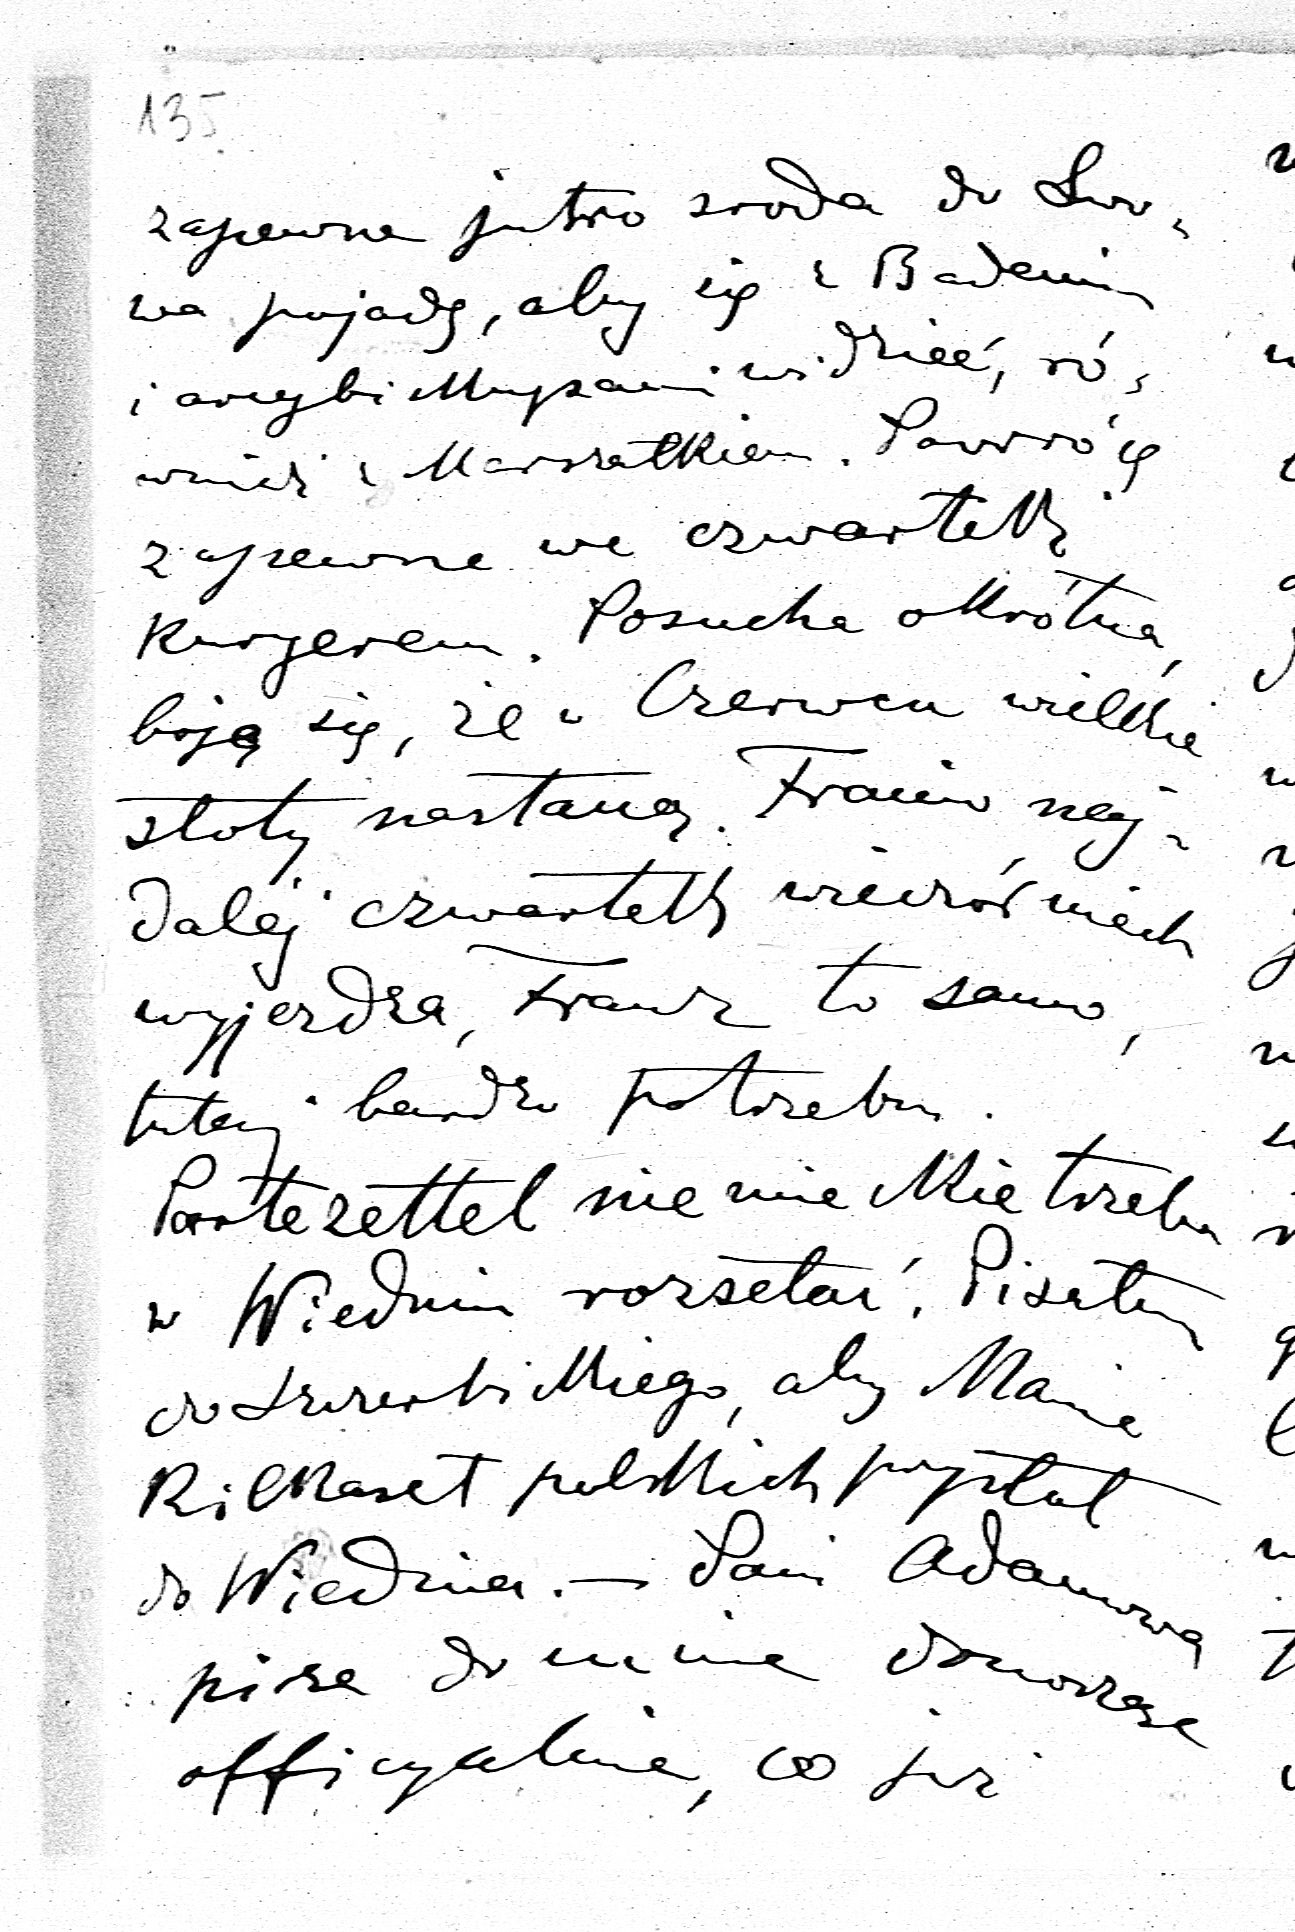 135
zapewne jutro sroda do Lwo-
wa pojadę, aby się z Badenim
i arcybiskupami widzieć, ró-
wnież z Marszałkiem. Powrócę
zapewne we czwartek
Kuryerem. Posucha okrótna,
boję się, że w Czerwcu wielkie
słoty nastaną. Franio naj-
dalej czwartek wieczór niech
wyjezdza, Franz to samo,
tutaj bardzo potrzebni.
Partezettel nie wielkie trzeba
w Wiedniu rozsełać. Pisałem
do, aby Mania
Kilkaset polskich przysłał
do Wiednia. — Pani Adamowa
pisze do mnie donosząc
officyalnie, co już